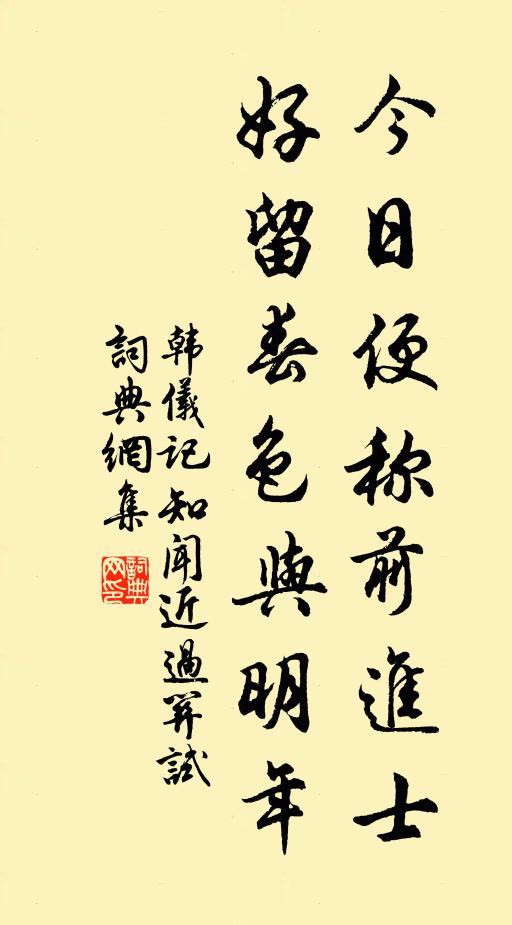 今日便称前進士
好留春色與明年
韩儀記知聞近過芽試
詞典網集
詞典
网印